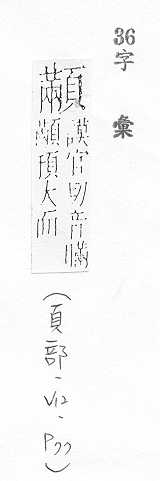 36字 彙
顢 謨官切音瞞
顢頇大面
(頁部-V12-P77)